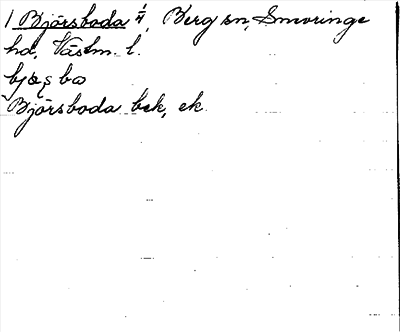 1 Björsboda 1/4, Berg sn, Snevringe
hd, Västm. l.
bjœ̨ş bω
Björsboda bek, ek.